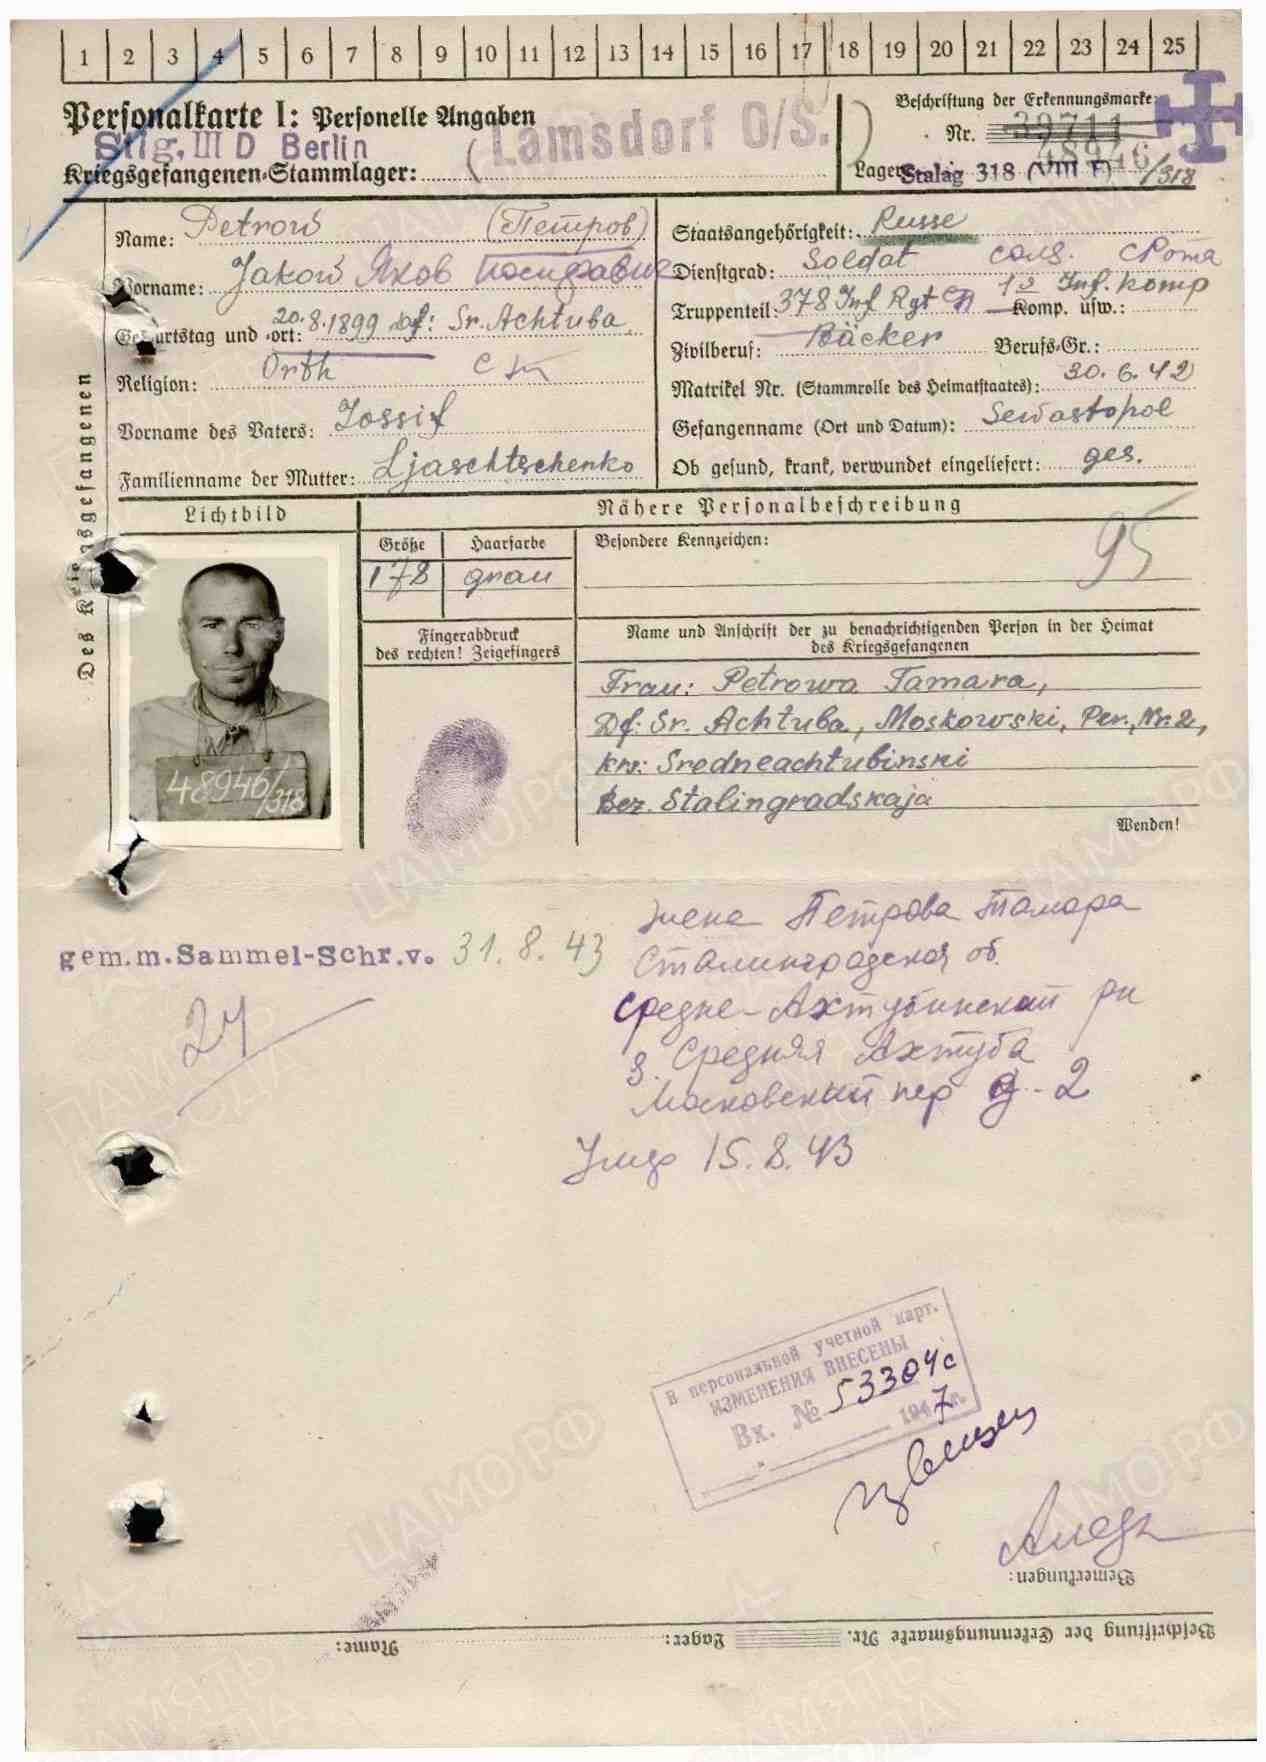 1 2 3 4 5 6 7 8 9 10 11 12 13 14 15 16 17 18 19 20 21 22 23 24 25
Personalkarte I: Personelle Angaben
Stlg. III D Berlin
Kriegsgefangenen-Stammlager:
(Lamsdorf O/S.)
Beschriftung der Erkennungsmarke
Nr. 39711
48946/318
Lager: Stalag 318 (VIII F)
Des Kriegsgefangenen
Name: Petrow (Петров)
Vorname: Jakow Яков
Geburtstag und -ort: 20.8.1899 Df: Sr. Achtuba
Religion: Orth
Vorname des Vaters: Jossif
Familienname der Mutter: Ljaschtschenko
Staatsangehörigkeit: Russe
Dienstgrad: Soldat сол.
Truppenteil: 378 Inf Rgt Komp. usw.: Inf. Komp
Zivilberuf: Bäcker Berufs-Gr.:
Matrikel Nr. (Stammrolle des Heimatstaates): 30.6.42
Gefangenname (Ort und Datum): Sewastopol
Ob gesund, krank, verwundet eingeliefert: ges.
Lichtbild
48946/318
Nähere Personalbeschreibung
Größe Haarfarbe
178 grau
Besondere Kennzeichen:
95
Fingerabdruck
des rechten! Zeigefingers
Name und Anschrift der zu benachrichtigenden Person in der Heimat
des Kriegsgefangenen
Frau: Petrowa Tamara,
Df: Sr. Achtuba, Moskowski, Per., Nr. 2,
Krs: Sredneachtubinski
Bez. Stalingradskaja
Wenden!
gem.m.Sammel-Schr.v. 31.8.43
жена Петрова Тамара
Сталинградская об.
Средне-Ахтубинский рн
Средняя Ахтуба
Московский пер д-2
15.8.43
В персональной учетной карт.
ИЗМЕНЕНИЯ ВНЕСЕНЫ
Вх. № 53304с
1947 г.
Bemerkungen:
Beschriftung der Erkennungsmarke Nr. Lager: Name: